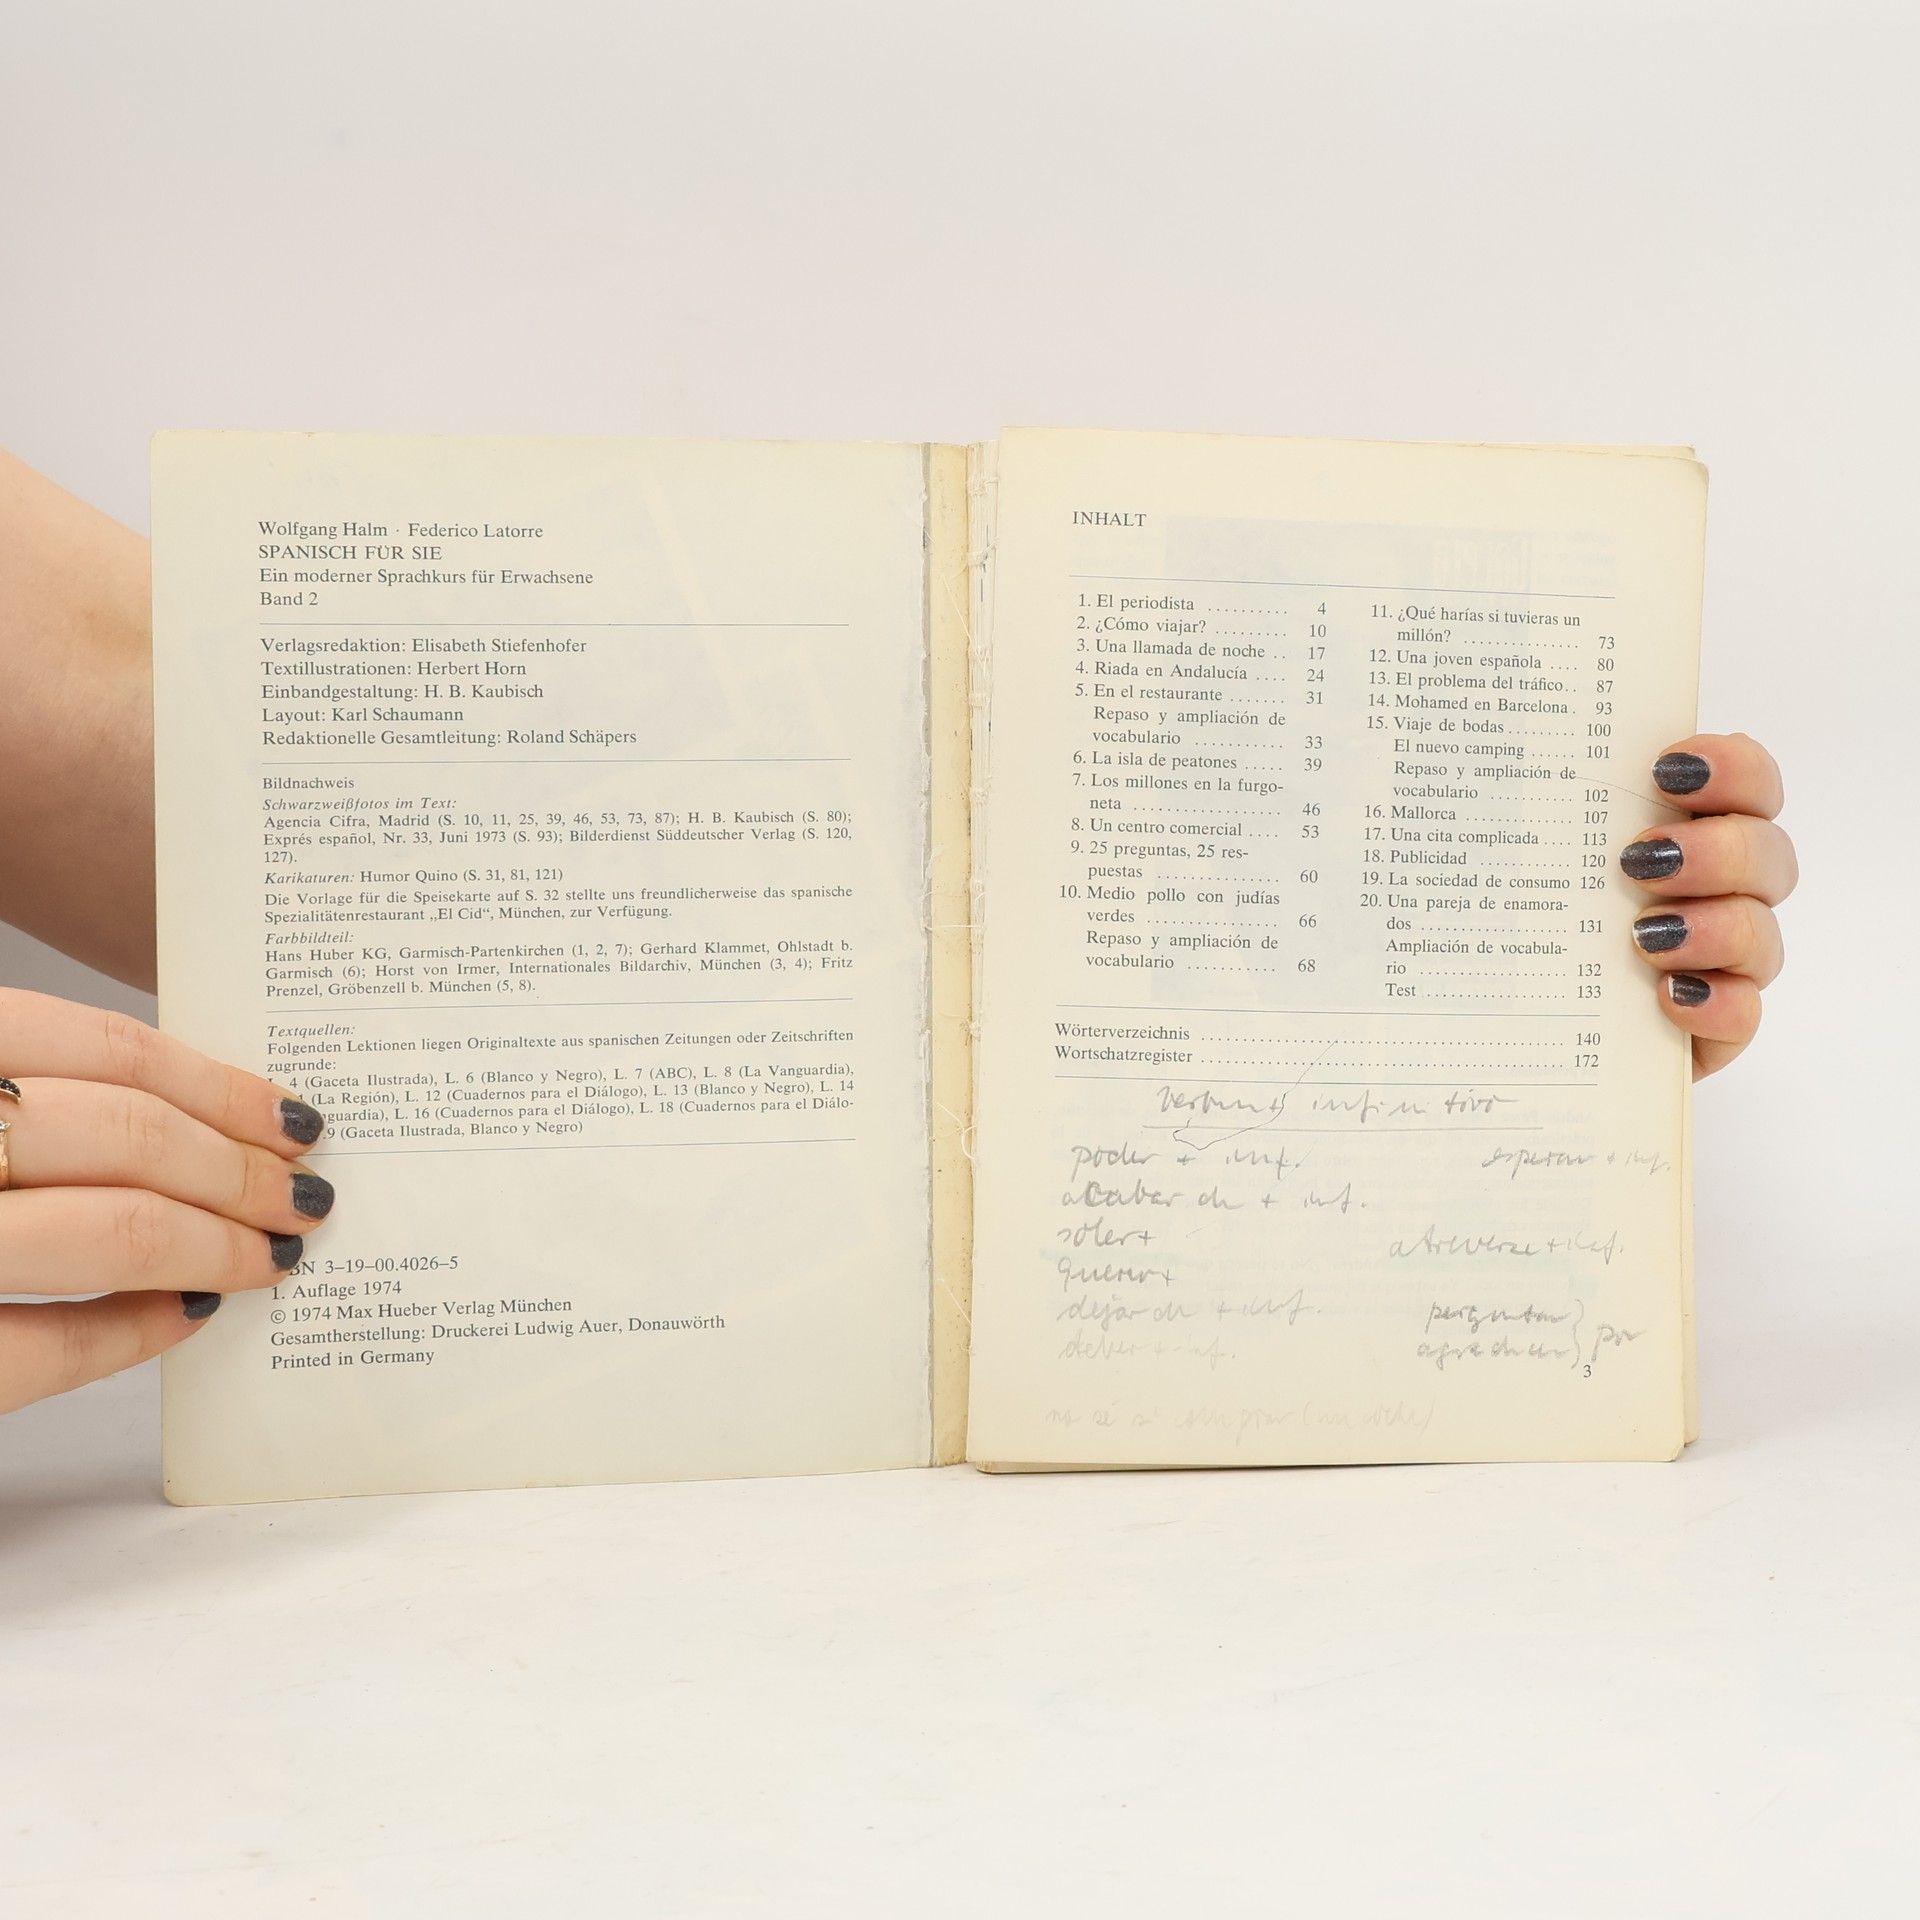 Wolfgang Halm · Federico Latorre
SPANISCH FÜR SIE
Ein moderner Sprachkurs für Erwachsene
Band 2
Verlagsredaktion: Elisabeth Stiefenhofer
Textillustrationen: Herbert Horn
Einbandgestaltung: H. B. Kaubisch
Layout: Karl Schaumann
Redaktionelle Gesamtleitung: Roland Schäpers
Bildnachweis
Schwarzweißfotos im Text:
Agencia Cifra, Madrid (S. 10, 11, 25, 39, 46, 53, 73, 87); H. B. Kaubisch (S. 80);
Exprés español, Nr. 33, Juni 1973 (S. 93); Bilderdienst Süddeutscher Verlag (S. 120,
127).
Karikaturen: Humor Quino (S. 31, 81, 121)
Die Vorlage für die Speisekarte auf S. 32 stellte uns freundlicherweise das spanische
Spezialitätenrestaurant „El Cid“, München, zur Verfügung.
Farbbildteil:
Hans Huber KG, Garmisch-Partenkirchen (1, 2, 7); Gerhard Klammet, Ohlstadt b.
Garmisch (6); Horst von Irmer, Internationales Bildarchiv, München (3, 4); Fritz
Prenzel, Gröbenzell b. München (5, 8).
Textquellen:
Folgenden Lektionen liegen Originaltexte aus spanischen Zeitungen oder Zeitschriften
zugrunde:
4 (Gaceta Ilustrada), L. 6 (Blanco y Negro), L. 7 (ABC), L. 8 (La Vanguardia),
(La Región), L. 12 (Cuadernos para el Diálogo), L. 13 (Blanco y Negro), L. 14
nguardia), L. 16 (Cuadernos para el Diálogo), L. 18 (Cuadernos para el Diálo-
9 (Gaceta Ilustrada, Blanco y Negro)
BN 3-19-00.4026-5
1. Auflage 1974
© 1974 Max Hueber Verlag München
Gesamtherstellung: Druckerei Ludwig Auer, Donauwörth
Printed in Germany
INHALT
1. El periodista .......... 4
2. ¿Cómo viajar? ......... 10
3. Una llamada de noche .. 17
4. Riada en Andalucía .... 24
5. En el restaurante ....... 31
Repaso y ampliación de
vocabulario ........... 33
6. La isla de peatones ..... 39
7. Los millones en la furgo-
neta ................ 46
8. Un centro comercial .... 53
9. 25 preguntas, 25 res-
puestas .............. 60
10. Medio pollo con judías
verdes ............... 66
Repaso y ampliación de
vocabulario ........... 68
11. ¿Qué harías si tuvieras un
millón? .............. 73
12. Una joven española .... 80
13. El problema del tráfico.. 87
14. Mohamed en Barcelona . 93
15. Viaje de bodas ......... 100
El nuevo camping ...... 101
Repaso y ampliación de
vocabulario .......... 102
16. Mallorca ............. 107
17. Una cita complicada .... 113
18. Publicidad ........... 120
19. La sociedad de consumo 126
20. Una pareja de enamora-
dos .................. 131
Ampliación de vocabula-
rio .................. 132
Test ................. 133
Wörterverzeichnis ........................................ 140
Wortschatzregister ........................................ 172
poder + inf.
esperar + inf.
acabar de + inf.
soler +
atreverse + inf.
querer +
dejar de + inf.
deber + inf.
por
3
no sé si comprar